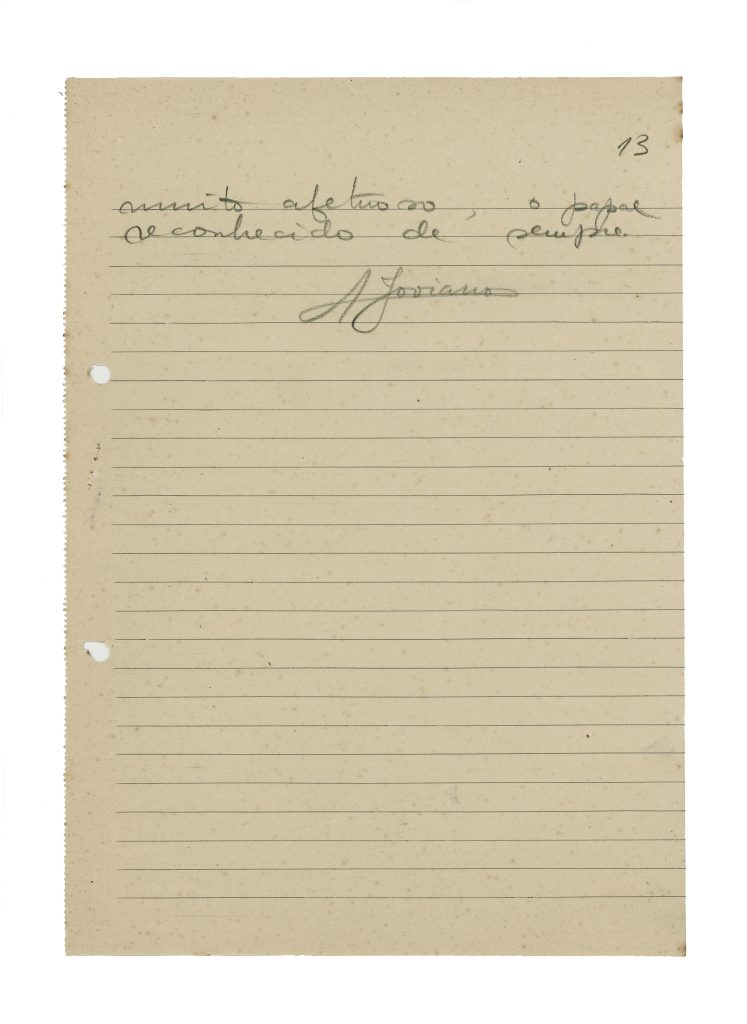 13
muito afetuoso, o papae
reconhecido de sempre.
A Joviano